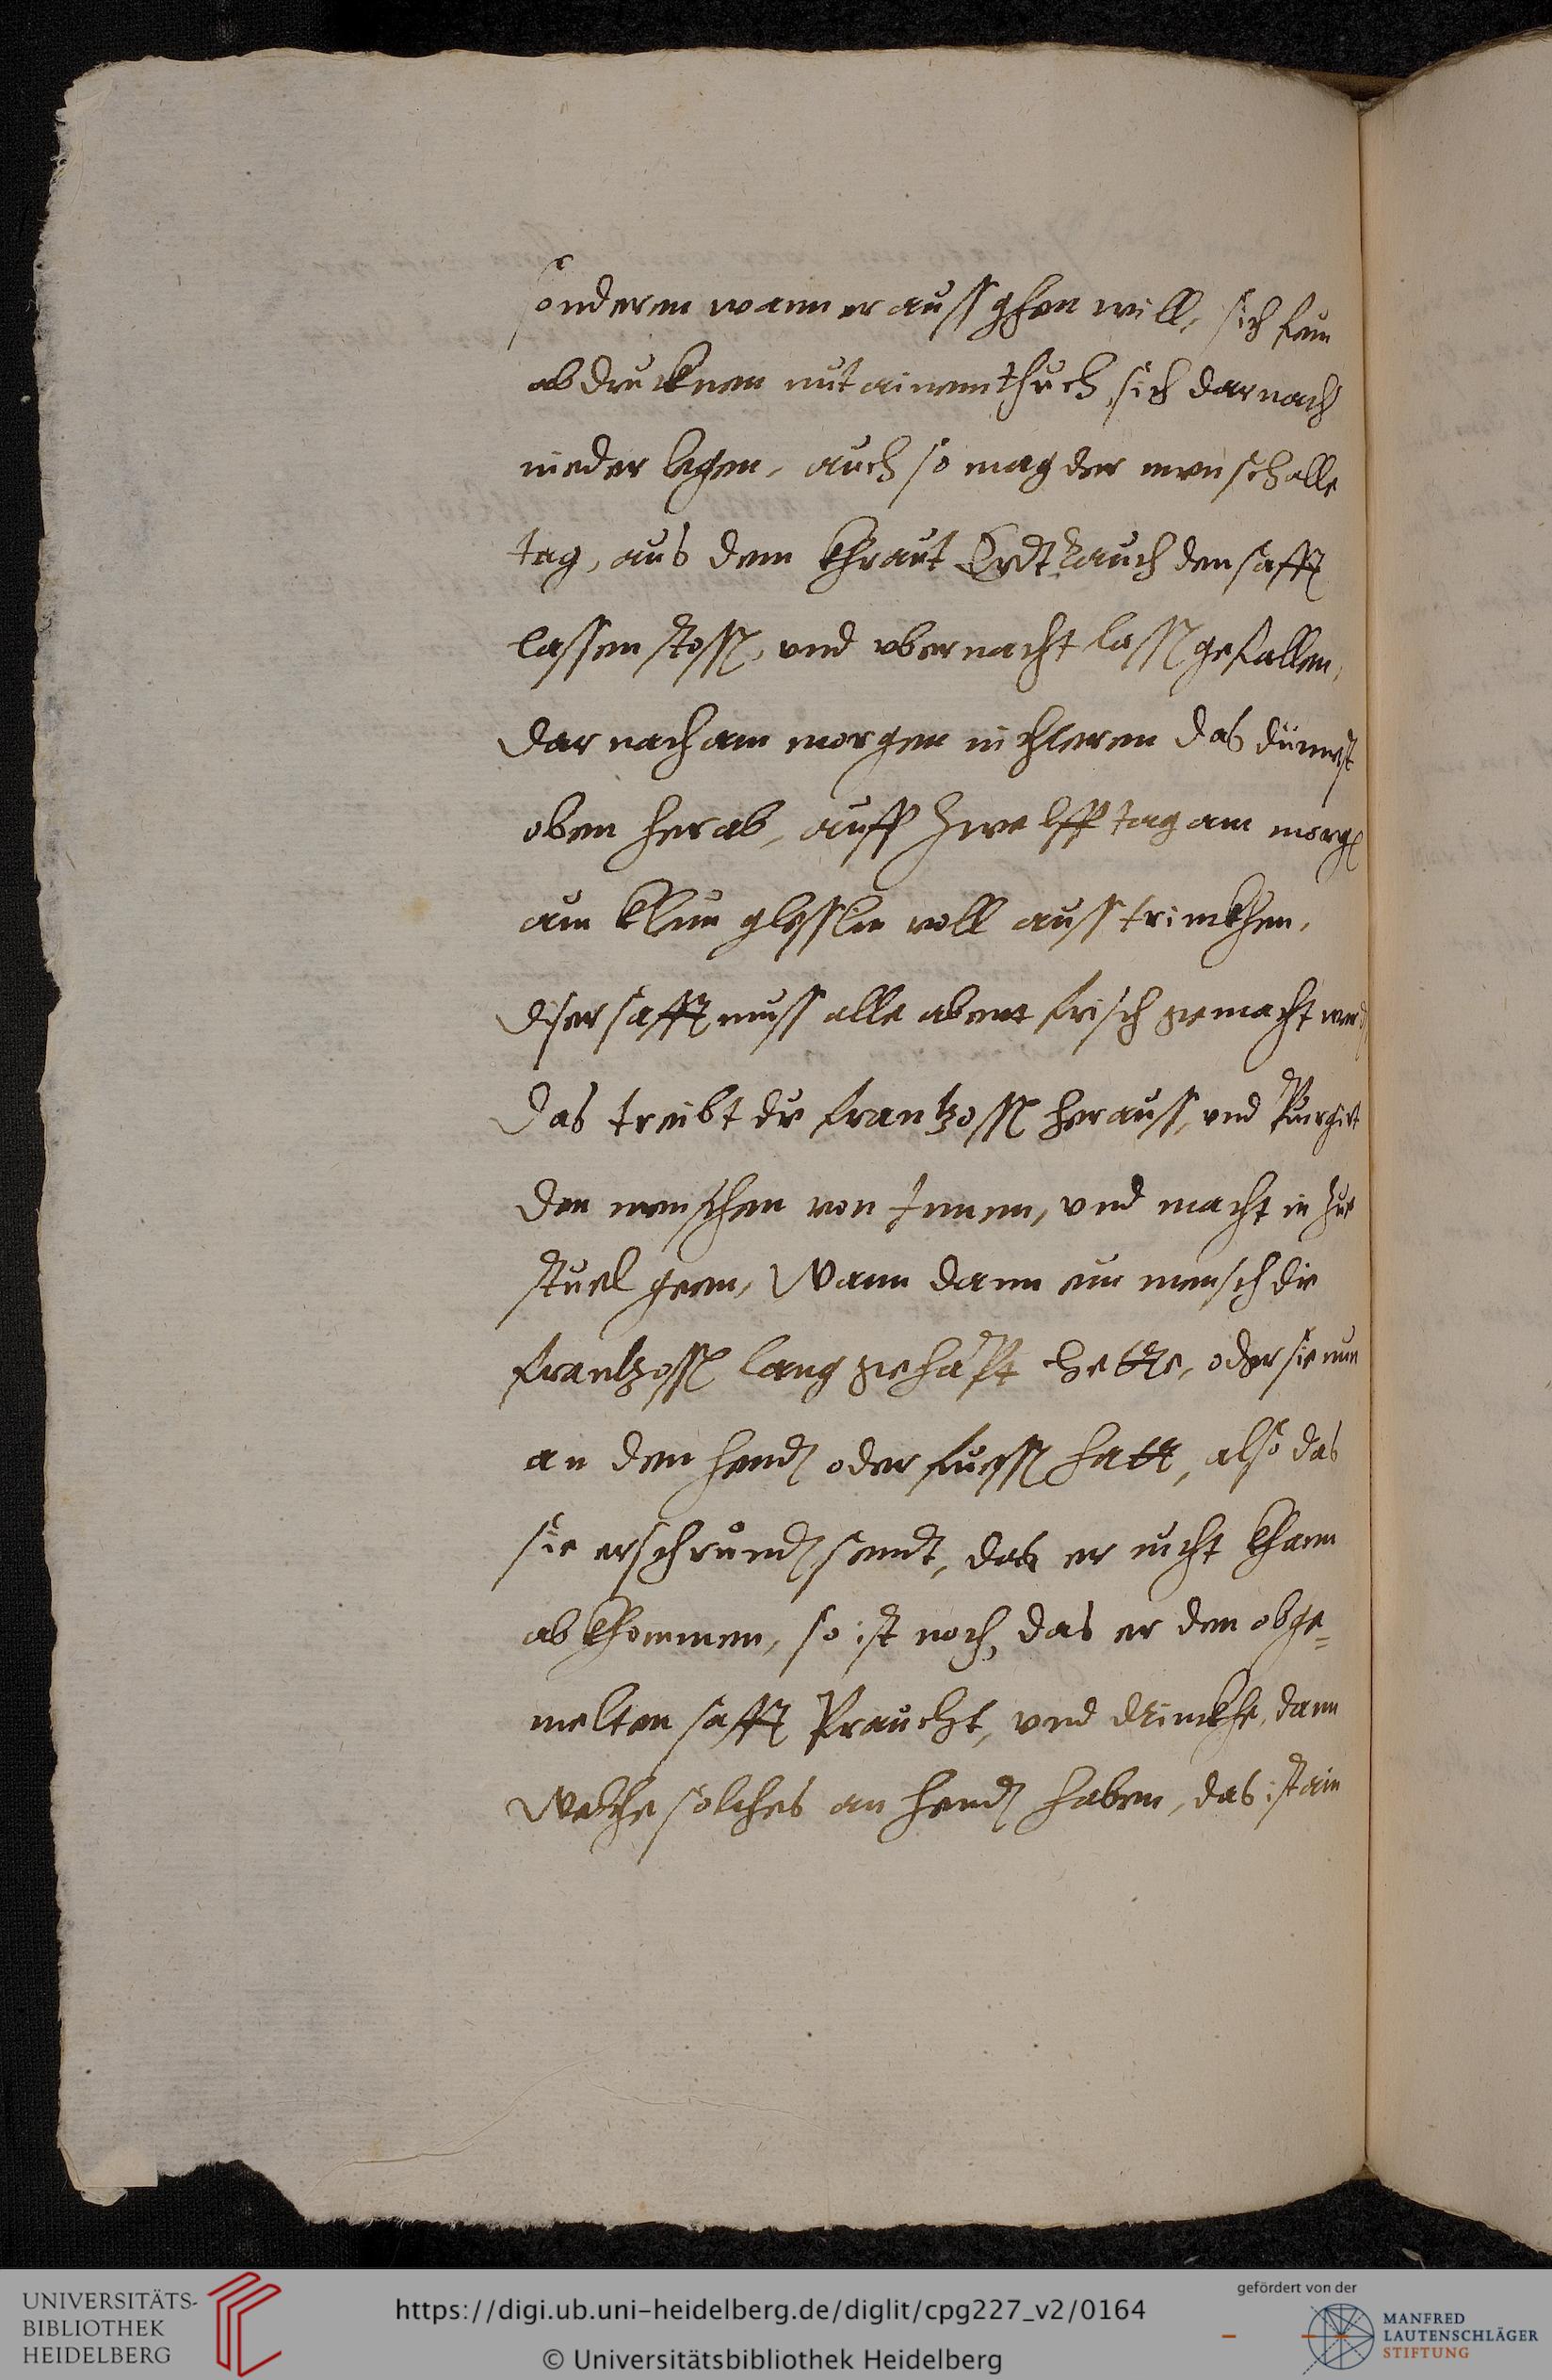 sonderen wann er auss gehen will, sich fein
ab drucknen mit ainem thuch, sich darnach
nieder legen, auch so mag der mensch alle
tag, aus dem khraut Erdt Rauch den safft
lassen stossen, und vbernacht lassen gefallen,
darnach am morgen nichteren das dünnest
oben herab, auff zwelff tag am morgen
ain klein glesslin voll auss trinckhen,
diser safft muss alle abent frisch gemacht werden
das treibt die frantzossen herauss, vnd Purgirt
den menschen von Innen, und macht in zue
stuel geen, Wann dann ein mensch die
frantzossen lang gehapt hette, oder sie nun
an den henden oder fuessen hatt, also das
sie erschrunden seindt, das er nicht khann
ab khommen, so ist noch, das er den obge=
melten safft Praucht, vnd drinckhe, dann
Welche solches an henden haben, das ist ain
UNIVERSITÄTS-
BIBLIOTHEK
HEIDELBERG
https://digi.ub.uni-heidelberg.de/diglit/cpg227_v2/0164
© Universitätsbibliothek Heidelberg
gefördert von der
MANFRED
LAUTENSCHLÄGER
STIFTUNG